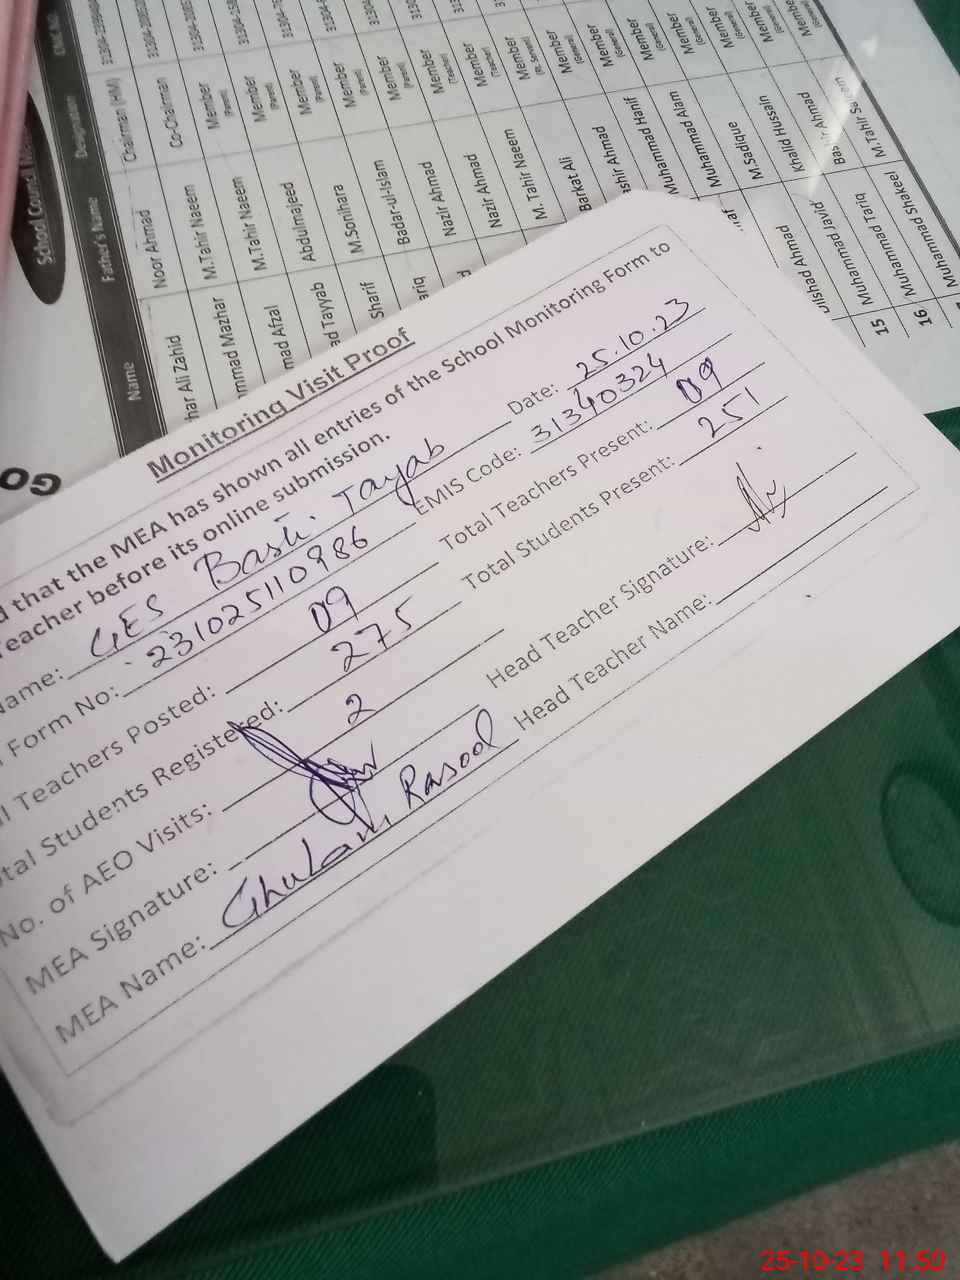 School Council
Name Father's Name Designation
har Ali Zahid Noor Ahmad Chairman (HM)
mmad Mazhar M.Tahir Naeem Co-Chairman
mad Afzal M.Tahir Naeem Member (Parent)
ad Tayyab Abdulmajeed Member (Parent)
Sharif M.Sonihara Member (Parent)
ariq Badar-ul-Islam Member (Parent)
Nazir Ahmad Member (Parent)
Nazir Ahmad Member (Teacher)
M. Tahir Naeem Member (Teacher)
Barkat Ali Member
ashir Ahmad Member (General)
Muhammad Hanif Member (General)
Muhammad Alam Member (General)
M.Sadique Member (General)
Dilshad Ahmad Khalid Hussain Member (General)
15 Muhammad Javid Bashir Ahmad Member (General)
16 Muhammad Tariq M.Tahir Saleem Member (General)
Muhammad Shakeel
GO
Monitoring Visit Proof
d that the MEA has shown all entries of the School Monitoring Form to
eacher before its online submission.
Name: GES Basti Tayab Date: 25.10.23
Form No: 231025110986 EMIS Code: 31340324
l Teachers Posted: 09 Total Teachers Present: 09
tal Students Registered: 275 Total Students Present: 251
No. of AEO Visits: 2
MEA Signature: Head Teacher Signature:
MEA Name: Ghulam Rasool Head Teacher Name:
25-10-23 11:50